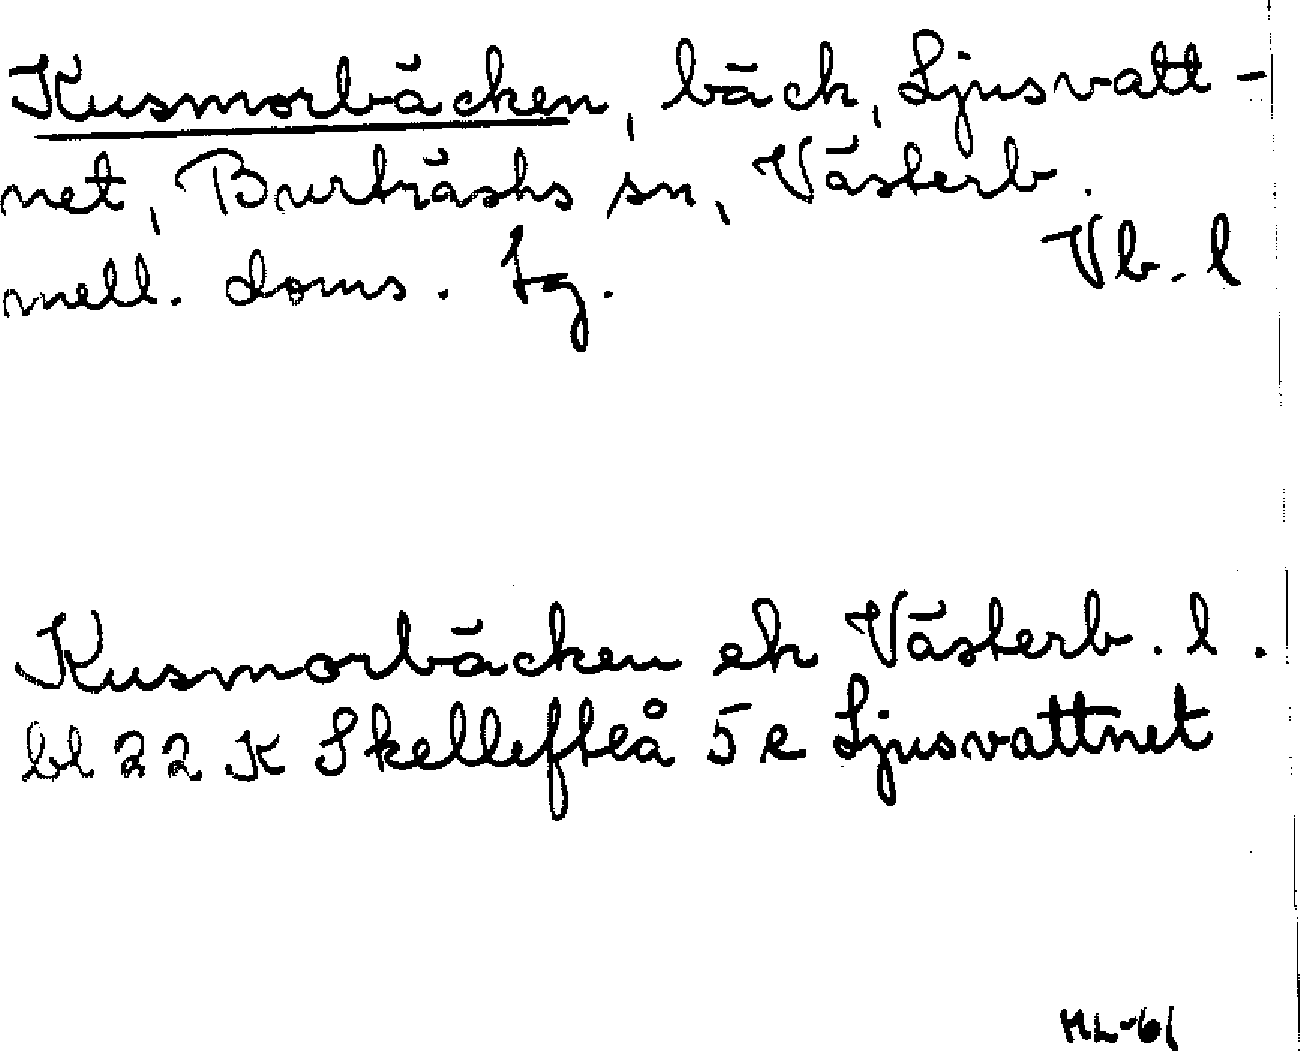 Kusmorbäcken, bäck, Ljusvatt-
net, Burträsks sn, Västerb.
mell. doms. Tg.
Vb. l
Kusmorbäcken ek Västerb. l.
bl 22 K Skellefteå 5 e Ljusvattnet
ML-61